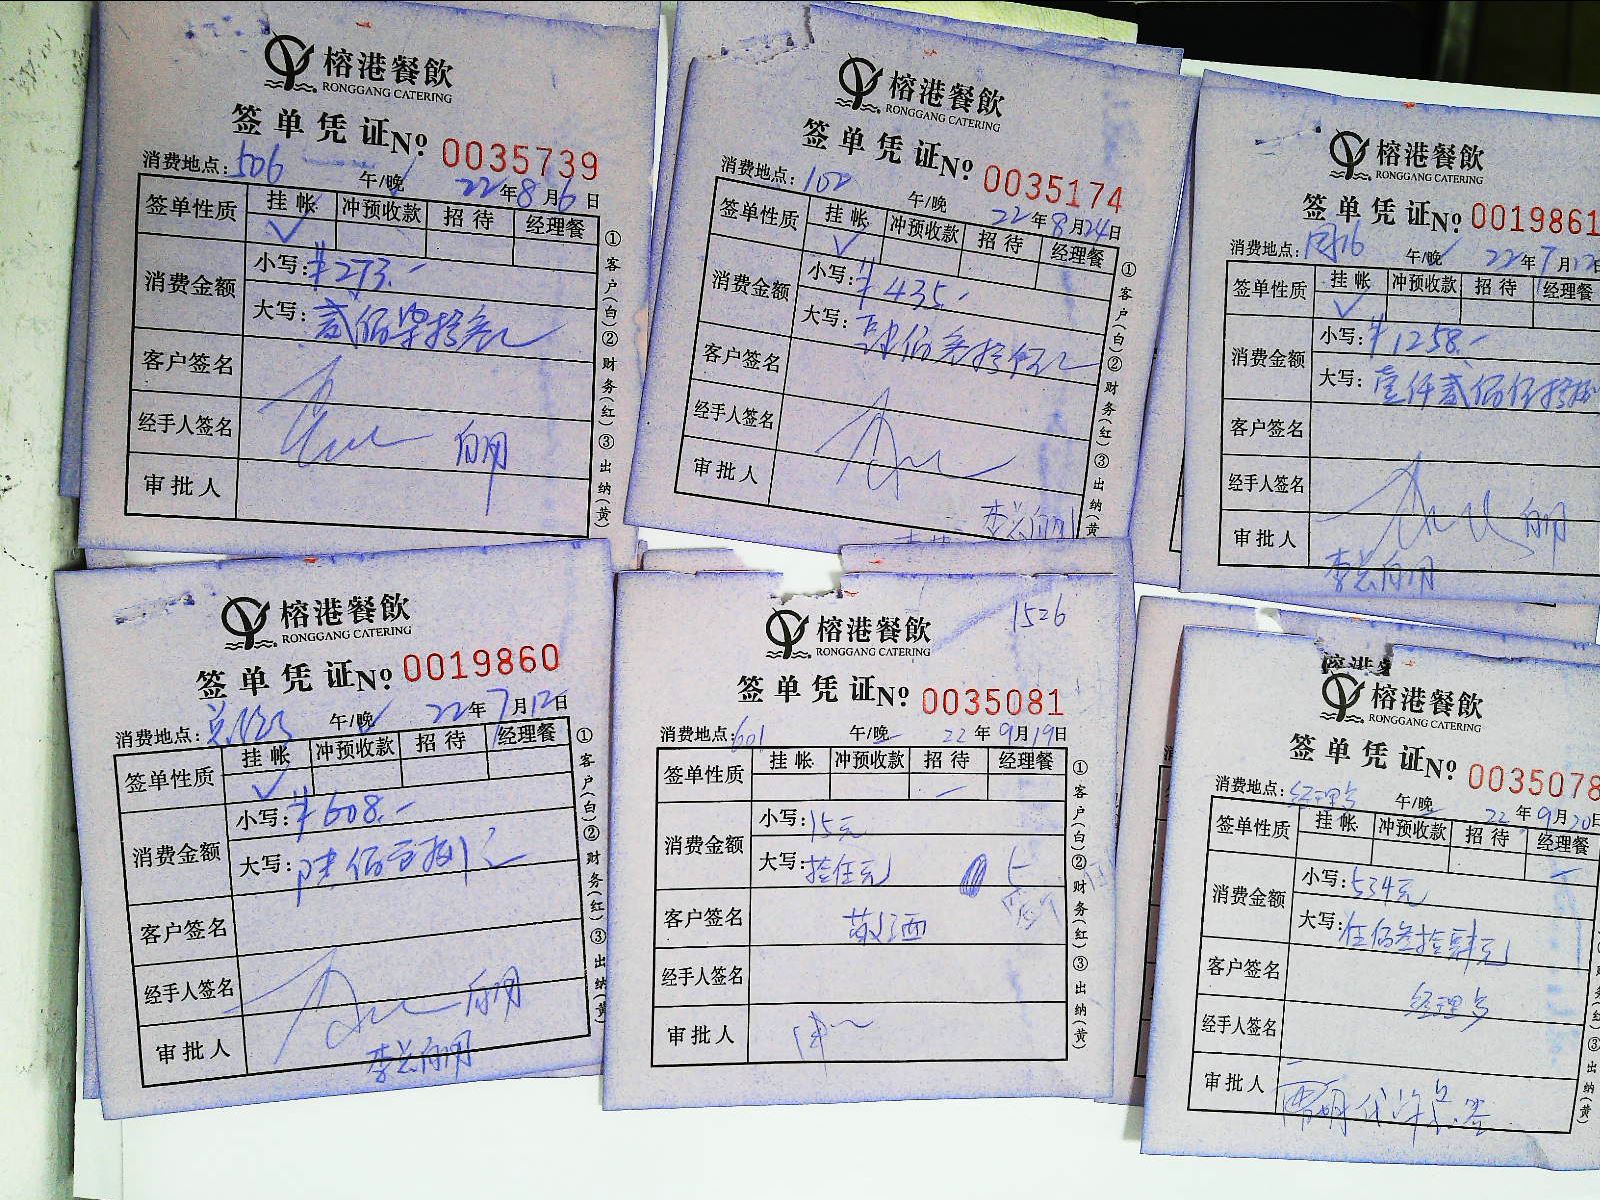 榕港餐飲
RONGGANG CATERING
签单凭证№ 0035739
消费地点:506 午/晚 22年8月6日
签单性质 挂帐 冲预收款 招待 经理餐
消费金额 小写:¥273.-
大写:贰佰柒拾叁元
客户签名
经手人签名
审批人
①客户(白)②财务(红)③出纳(黄)
榕港餐飲
RONGGANG CATERING
签单凭证№ 0035174
消费地点:102 午/晚 22年8月24日
签单性质 挂帐 冲预收款 招待 经理餐
消费金额 小写:¥435.-
大写:肆佰叁拾伍元
客户签名
经手人签名
审批人
①客户(白)②财务(红)③出纳(黄)
榕港餐飲
RONGGANG CATERING
签单凭证№ 0019861
消费地点: 午/晚 22年7月12日
签单性质 挂帐 冲预收款 招待 经理餐
消费金额 小写:¥1258.-
大写:壹仟贰佰伍拾捌
客户签名
经手人签名
审批人
榕港餐飲
RONGGANG CATERING
签单凭证№ 0019860
消费地点: 午/晚 22年7月12日
签单性质 挂帐 冲预收款 招待 经理餐
消费金额 小写:¥608.-
大写:陆佰零捌元
客户签名
经手人签名
审批人
①客户(白)②财务(红)③出纳(黄)
1526
榕港餐飲
RONGGANG CATERING
签单凭证№ 0035081
消费地点:601 午/晚 22年9月19日
签单性质 挂帐 冲预收款 招待 经理餐
消费金额 小写:15元
大写:拾伍元
客户签名 敬酒
经手人签名
审批人
①客户(白)②财务(红)③出纳(黄)
榕港餐飲
RONGGANG CATERING
签单凭证№ 0035078
消费地点:经理 午/晚 22年9月20日
签单性质 挂帐 冲预收款 招待 经理餐
消费金额 小写:534元
大写:伍佰叁拾肆元
客户签名
经理
经手人签名
审批人